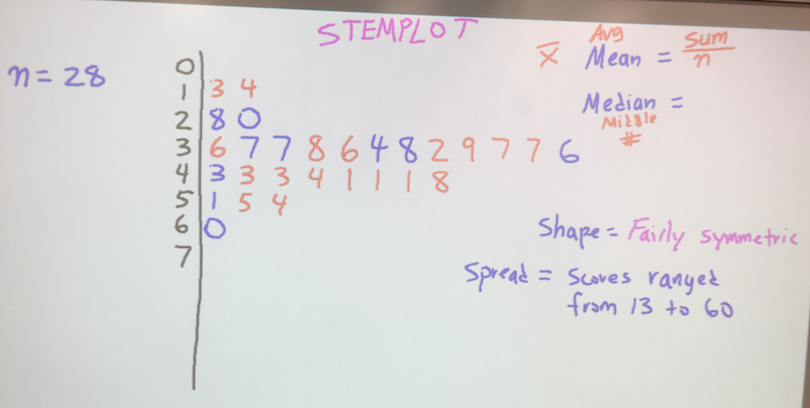 STEMPLOT
n = 28
0
1 | 3 4
2 | 8 0
3 | 6 7 7 8 6 4 8 2 9 7 7 6
4 | 3 3 3 4 1 1 1 8
5 | 1 5 4
6 | 0
7 |
Avg
x̄ Mean = sum/n
Median =
Middle
#
Shape = Fairly symmetric
Spread = scores ranged
from 13 to 60